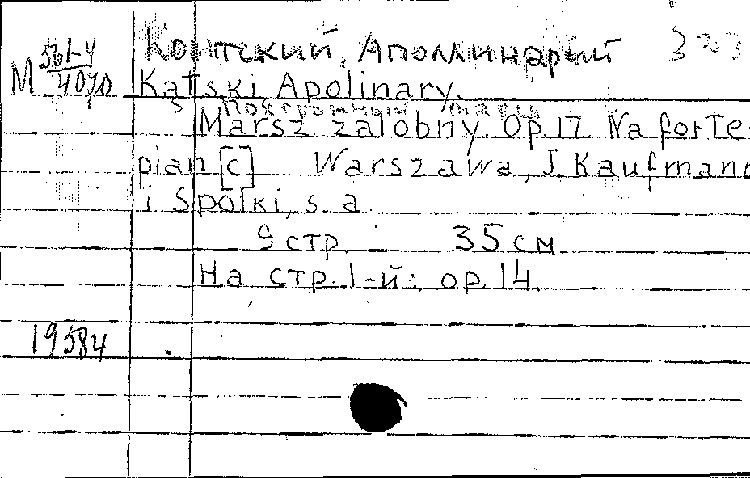 Контский, Аполлинарий 323
М 561-4/4070
Kątski Apolinary.
Похоронный марш
Marsz żałobny. Op.17. Na forte
pian [c] Warszawa, J. Kaufmann
i Spółki, s. a.
9 стр. 35 см.
На стр. 1-й: op. 14.
19584